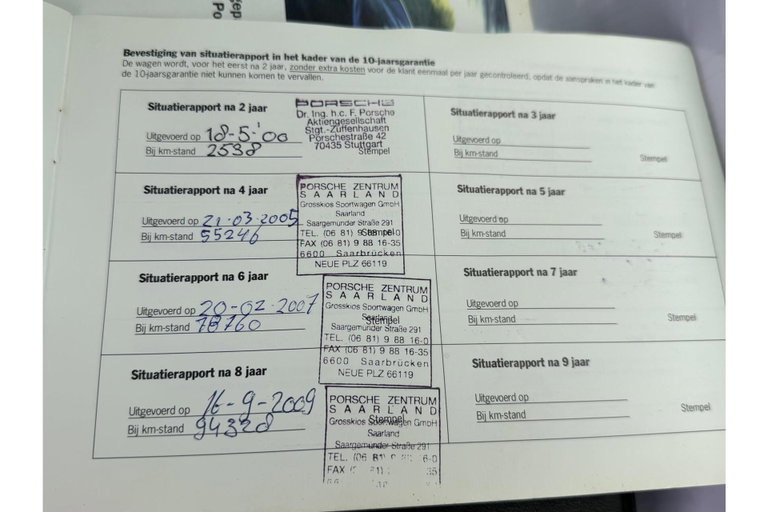 Bevestiging van situatierapport in het kader van de 10-jaarsgarantie
De wagen wordt, voor het eerst na 2 jaar, zonder extra kosten voor de klant eenmaal per jaar gecontroleerd, opdat de aanspraken in het kader van
de 10-jaarsgarantie niet kunnen komen te vervallen.
Situatierapport na 2 jaar
Uitgevoerd op 18-5-'00
Bij km-stand 2538
PORSCHE
Dr. Ing. h.c. F. Porsche
Aktiengesellschaft
Stgt.-Zuffenhausen
Porschestraße 42
70435 Stuttgart
Stempel
Situatierapport na 3 jaar
Uitgevoerd op
Bij km-stand
Stempel
Situatierapport na 4 jaar
Uitgevoerd op 21-03-2005
Bij km-stand 55246
PORSCHE ZENTRUM
SAARLAND
Grosskios Sportwagen GmbH
Saarland
Saargemünder Straße 291
TEL. (06 81) 9 88 16-0
Stempel
FAX (06 81) 9 88 16-35
6600 Saarbrücken
NEUE PLZ 66119
Situatierapport na 5 jaar
Uitgevoerd op
Bij km-stand
Stempel
Situatierapport na 6 jaar
Uitgevoerd op 20-02-2007
Bij km-stand 78760
PORSCHE ZENTRUM
SAARLAND
Grosskios Sportwagen GmbH
Saarland
Stempel
Saargemünder Straße 291
TEL. (06 81) 9 88 16-0
FAX (06 81) 9 88 16-35
6600 Saarbrücken
NEUE PLZ 66119
Situatierapport na 7 jaar
Uitgevoerd op
Bij km-stand
Stempel
Situatierapport na 8 jaar
Uitgevoerd op 16-9-2009
Bij km-stand 94328
PORSCHE ZENTRUM
SAARLAND
Grosskios Sportwagen GmbH
Stempel
Saarland
Saargemünder Straße 291
TEL. (06 81)
FAX
35
Situatierapport na 9 jaar
Uitgevoerd op
Bij km-stand
Stempel